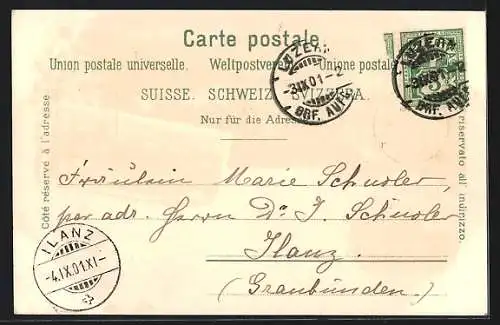 Carte postale.
Union postale universelle. Weltpostverein. Unione postale
SUISSE. SCHWEIZ. SVIZZERA.
Nur für die Adresse
Côté réservé à l'adresse
riservato all' indirizzo.
LUZERN
-3.IX.01-2
BRF. AUFG.
LUZERN
BRF. AUFG.
5
Fräulein Marie Schusler,
per adr. Herrn Dr. J. Schusler
Ilanz.
(Graubünden.)
ILANZ
-4.IX.01.XI-